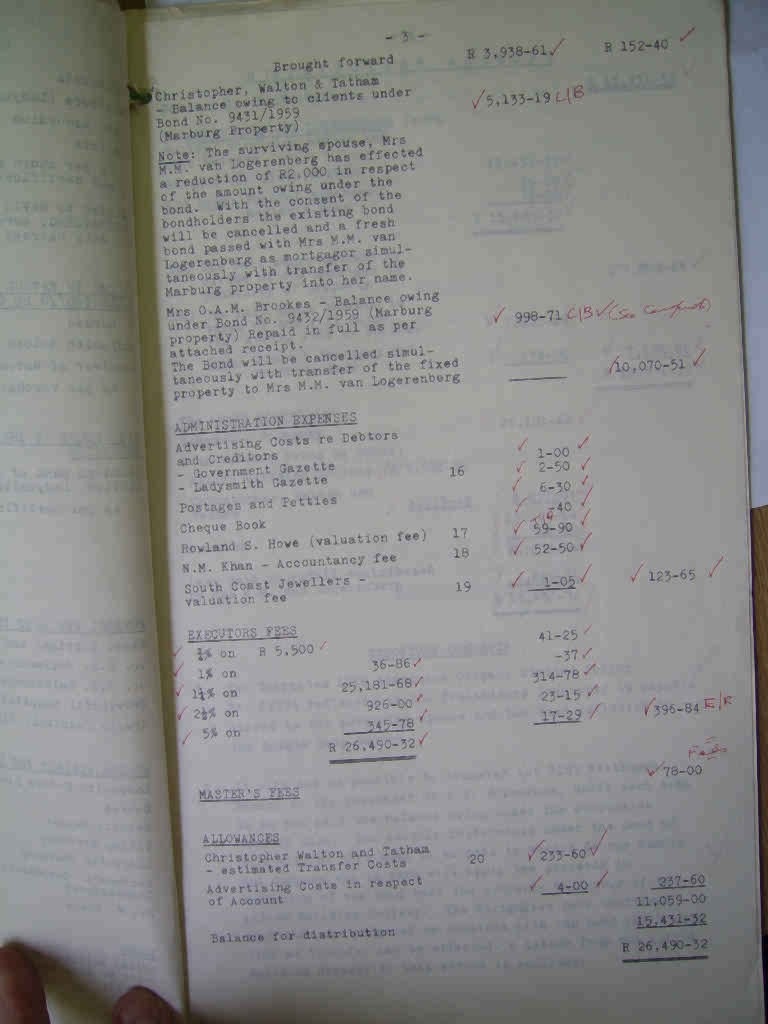 - 3 -
Brought forward R 3,938-61 R 152-40
Christopher, Walton & Tatham
- Balance owing to clients under
Bond No. 9431/1959 5,133-19 C/B
(Marburg Property)
Note: The surviving spouse, Mrs
M.M. van Logerenberg has effected
a reduction of R2,000 in respect
of the amount owing under the
bond. With the consent of the
bondholders the existing bond
will be cancelled and a fresh
bond passed with Mrs M.M. van
Logerenberg as mortgagor simul-
taneously with transfer of the
Marburg property into her name.
Mrs O.A.M. Brookes - Balance owing
under Bond No. 9432/1959 (Marburg 998-71 C/B (See
property) Repaid in full as per
attached receipt.
The Bond will be cancelled simul-
taneously with transfer of the fixed 10,070-51
property to Mrs M.M. van Logerenberg
ADMINISTRATION EXPENSES
Advertising Costs re Debtors
and Creditors
- Government Gazette 1-00
- Ladysmith Gazette 16 2-50
Postages and Petties 6-30
Cheque Book -40
Rowland S. Howe (valuation fee) 17 59-90
N.M. Khan - Accountancy fee 18 52-50
South Coast Jewellers -
valuation fee 19 1-05 123-65
EXECUTORS FEES
¾% on R 5,500 41-25
1% on 36-86 -37
1¼% on 25,181-68 314-78
2½% on 926-00 23-15
5% on 345-78 17-29 396-84 E/R
R 26,490-32
MASTER'S FEES 78-00
ALLOWANCES
Christopher Walton and Tatham
- estimated Transfer Costs 20 233-60
Advertising Costs in respect
of Account 4-00 237-60
11,059-00
15,431-32
Balance for distribution
R 26,490-32